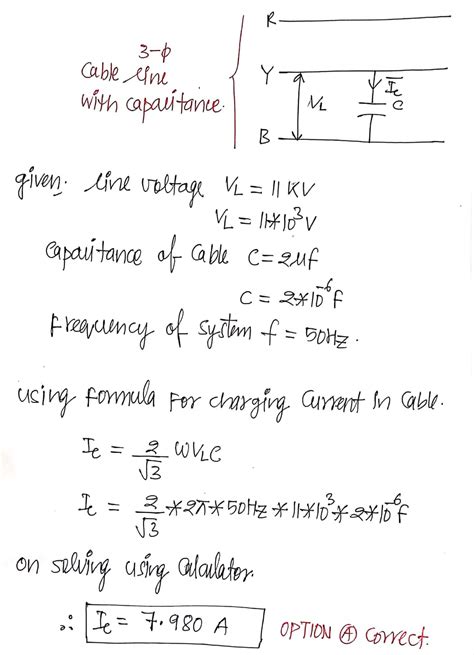 3-ϕ
Cable line
with capacitance.
R
Y
B
V_L
I_c
C
given. line voltage V_L = 11 KV
V_L = 11*10^3 V
Capacitance of Cable C = 2uf
C = 2*10^-6 f
Frequency of system f = 50Hz.
using formula For charging Current In Cable.
I_c = 2/√3 ωV_LC
I_c = 2/√3 *2π*50Hz*11*10^3*2*10^-6 f
on solving using Calculator.
∴ I_c = 7.980 A OPTION Ⓐ Correct.